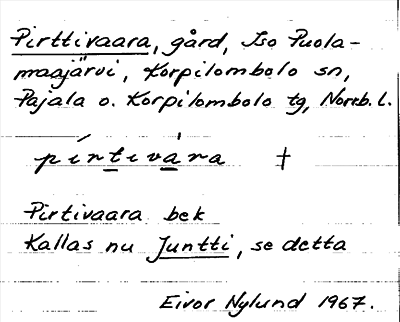 Pirttivaara, gård, Iso Puola-
maajärvi, Korpilombolo sn,
Pajala o. Korpilombolo tg, Norrb. l.
pírtivára †
Pirtivaara bek
Kallas nu Juntti, se detta
Eivor Nylund 1967.